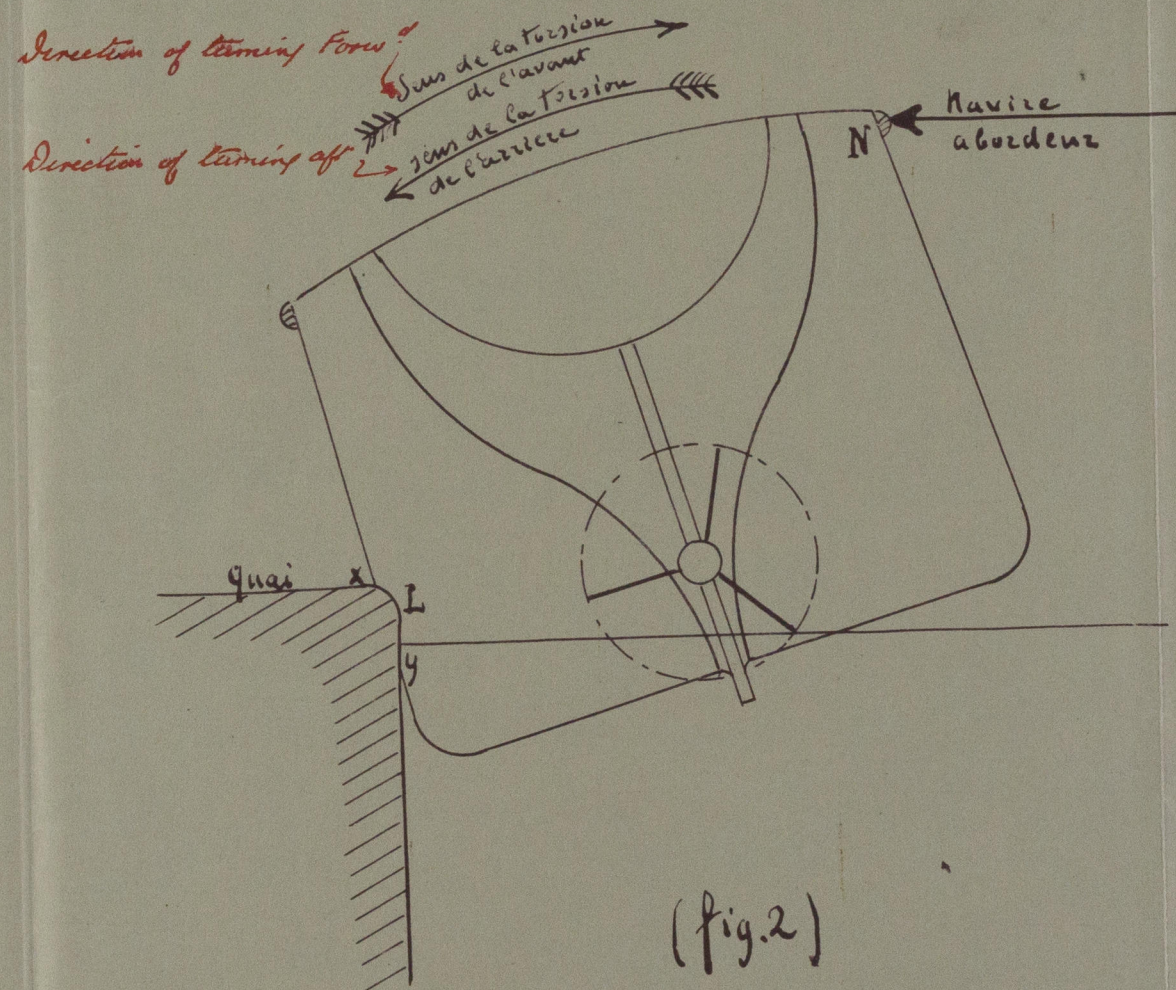 Direction of turning Forwd
Sens de la torsion
de l'avant
Direction of turning aft
sens de la torsion
de l'arriere
N
Navire
abordeur
quai
x
L
y
(fig.2)